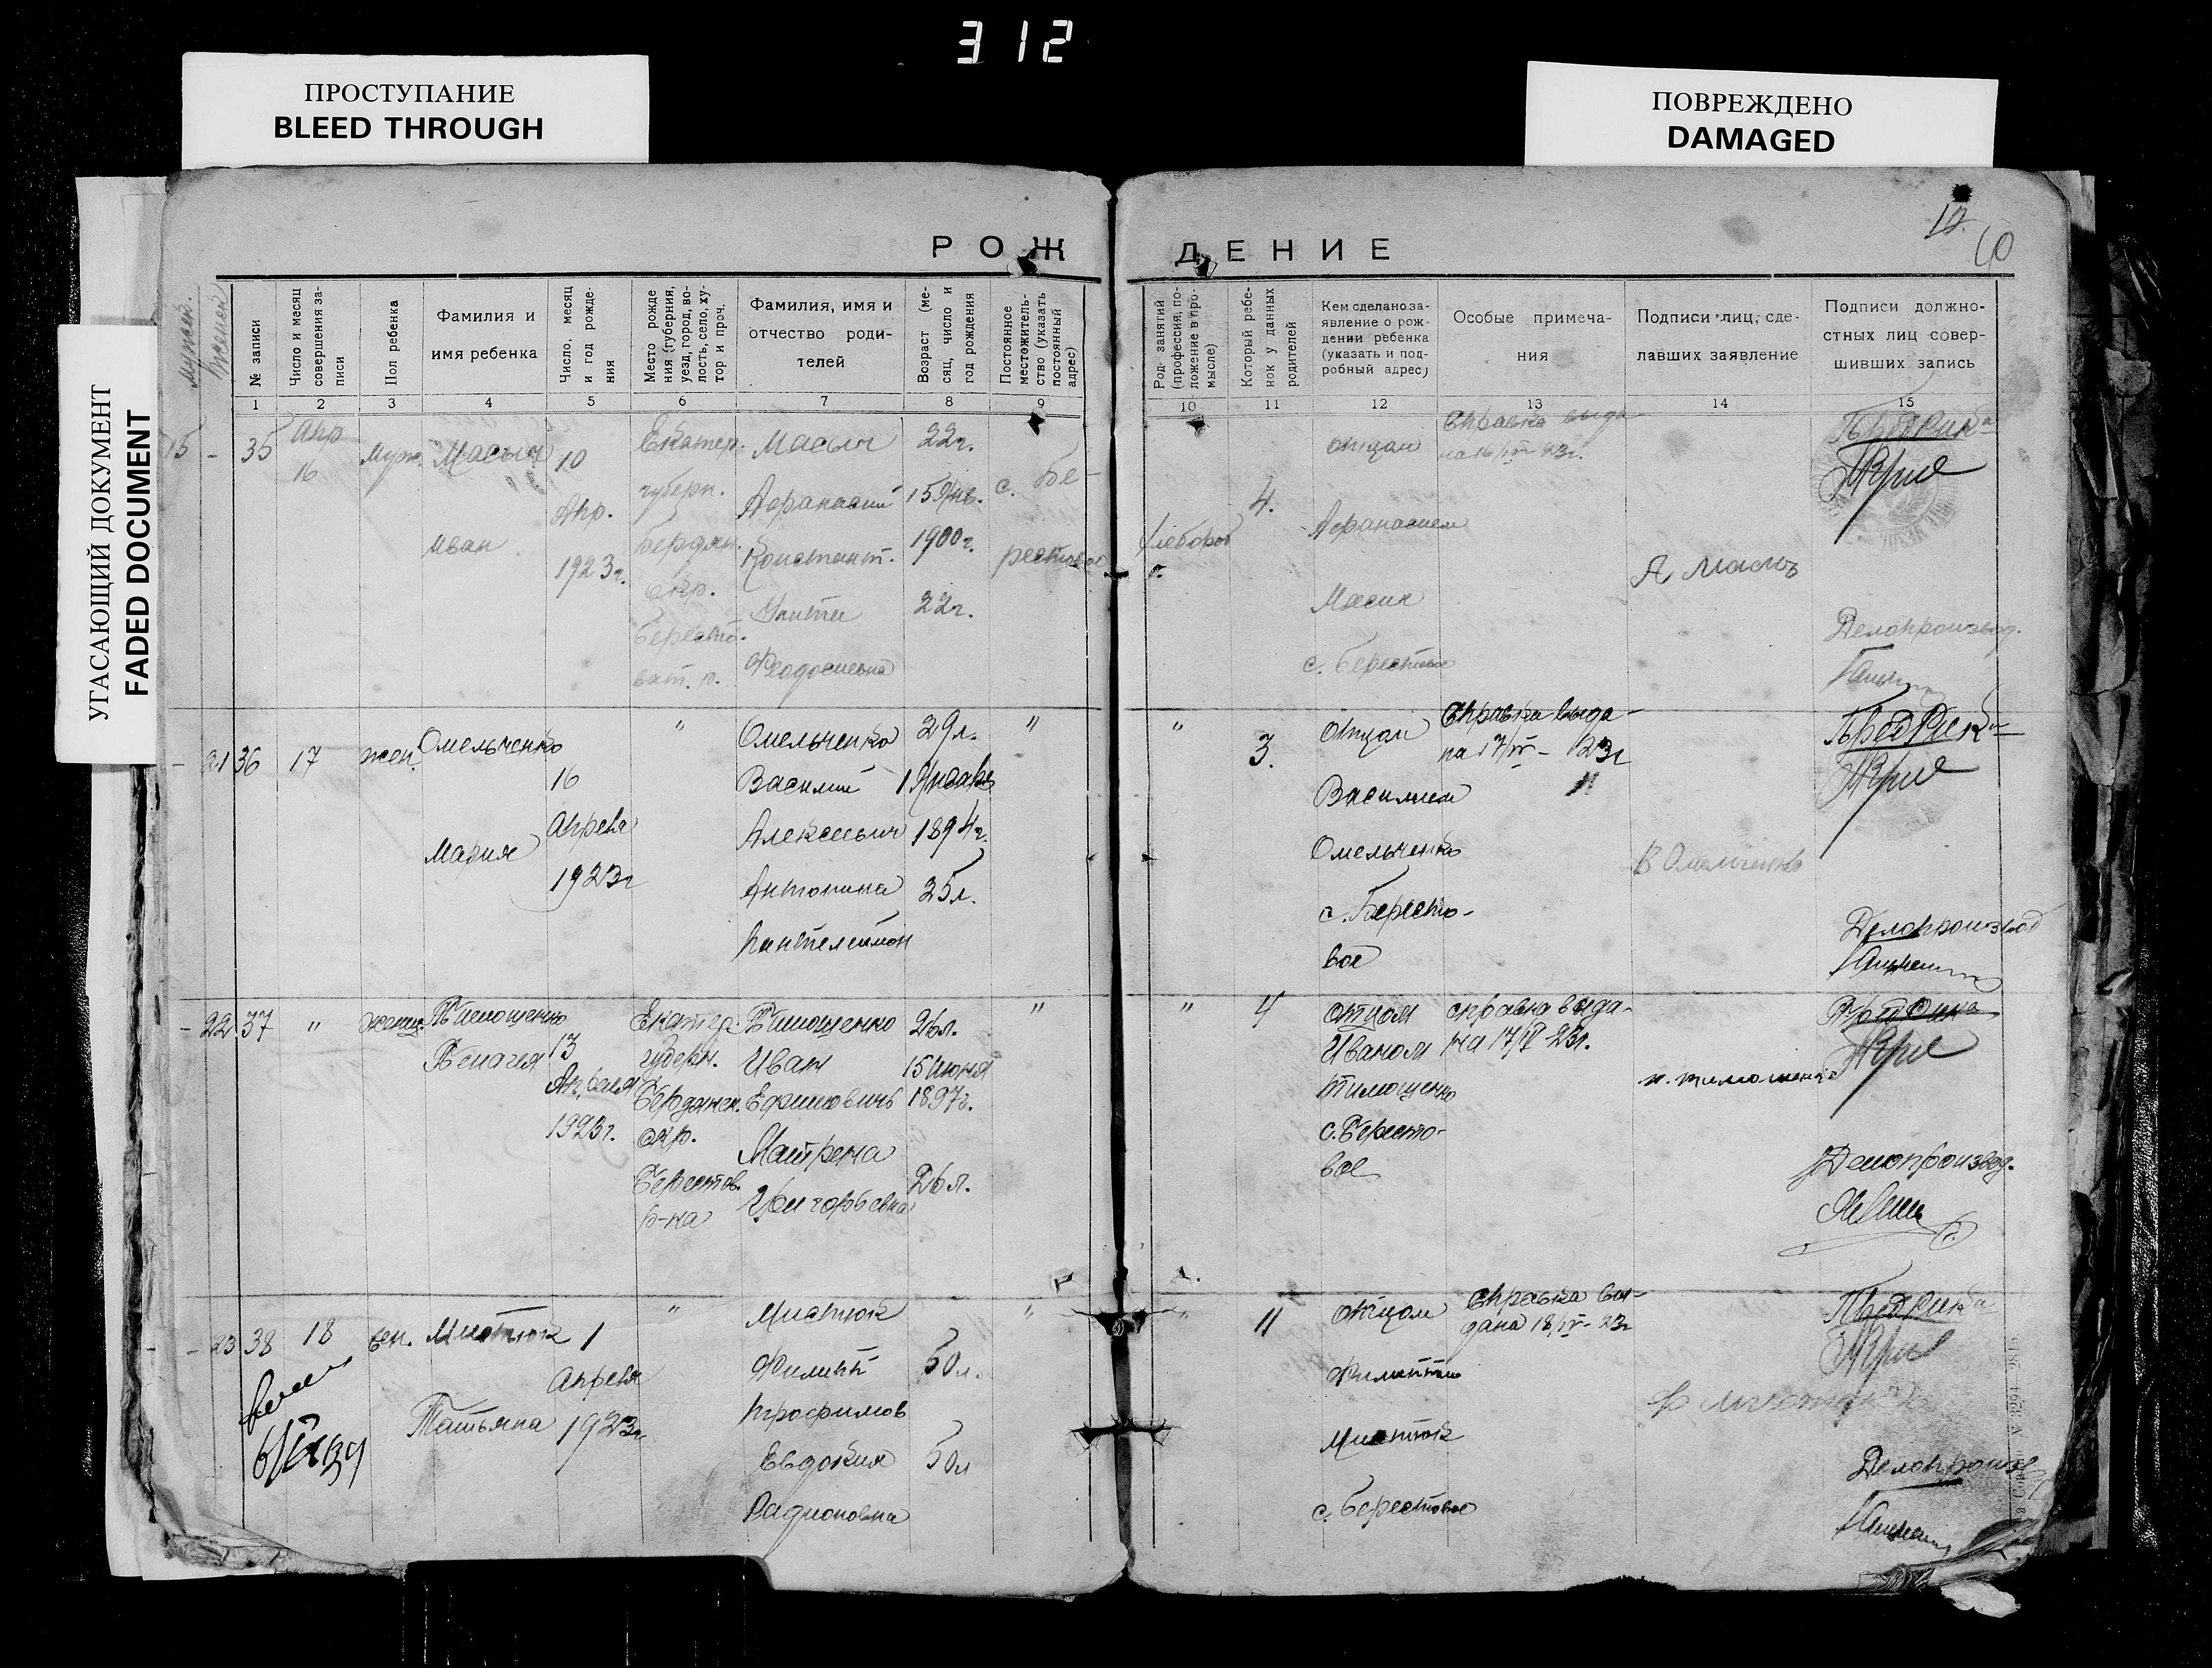 312
ПРОСТУПАНИЕ
BLEED THROUGH
ПОВРЕЖДЕНО
DAMAGED
УГАСАЮЩИЙ ДОКУМЕНТ
FADED DOCUMENT
РОЖДЕНИЕ
№ записи
Число и месяц совершения записи
Пол ребенка
Фамилия и
имя ребенка
Число, месяц и год рождения
Место рождения (губерния, уезд, город, волость, село, хутор и проч.
Фамилия, имя и
отчество роди-
телей
Возраст (месяц, число и год рождения
Постоянное местожительство (указать постоянный адрес)
Род занятий (профессия, положение в промысле)
Который ребенок у данных родителей
Кем сделано за-
явление о рож-
дении ребенка
(указать и под-
робный адрес)
Особые примеча-
ния
Подписи лиц, сде-
лавших заявление
Подписи должно-
стных лиц совер-
шивших запись
1 2 3 4 5 6 7 8 9 10 11 12 13 14 15
15 - 35
Апр
16
Муж.
Масыч
Иван
10
Апр.
1923г.
Екатер.
губерн.
Бердян.
окр.
Берестов.
Масыч
Афанасий
Констант.
Феодосиевна
22г.
15 Янв.
1900г.
22г.
с. Бе-
рестовое
Хлебороб
4.
отцом
Афанасием
Масич
с. Берестовое
Справка выда-
на 16/IV 23г.
Делопроизвод.
- 21 36
17
жен.
Омельченко
Мария
16
Апреля
1923г
"
Омельченко
Василий
Алексеевич
Антонина
Пантелеймон
29л.
1 Января
1894г.
25л.
"
"
3.
Отцом
Василием
Омельченко
с. Бересто-
вое
Справка выда-
на 17/IV - 23г
В Омельченко
Делопроизвод
- 22 37
"
женщ
Тимошенко
Пелагея
13
Апреля
1923г.
Екатер.
губерн.
Бердянск.
окр.
Берестов.
р-на
Тимошенко
Иван
Ефимовичъ
Матрена
Григорьевна
26л.
15 Июня
1897г.
26л.
"
"
4
отцом
Иваном
Тимошенко
с. Бересто-
вое
справка выда-
на 17/IV 23г.
и. тимошенко
Делопроизвод.
- 23 38
18
жен.
Мистюк
Татьяна
1
Апреля
1923г
"
Мистюк
Филипп
Трофимов
Евдокия
Радионовна
50л.
50л
"
"
11
Отцом
Филиппом
Мистюк
с. Берестовое
Справка вы-
дана 18/IV - 23г
Делопроизв